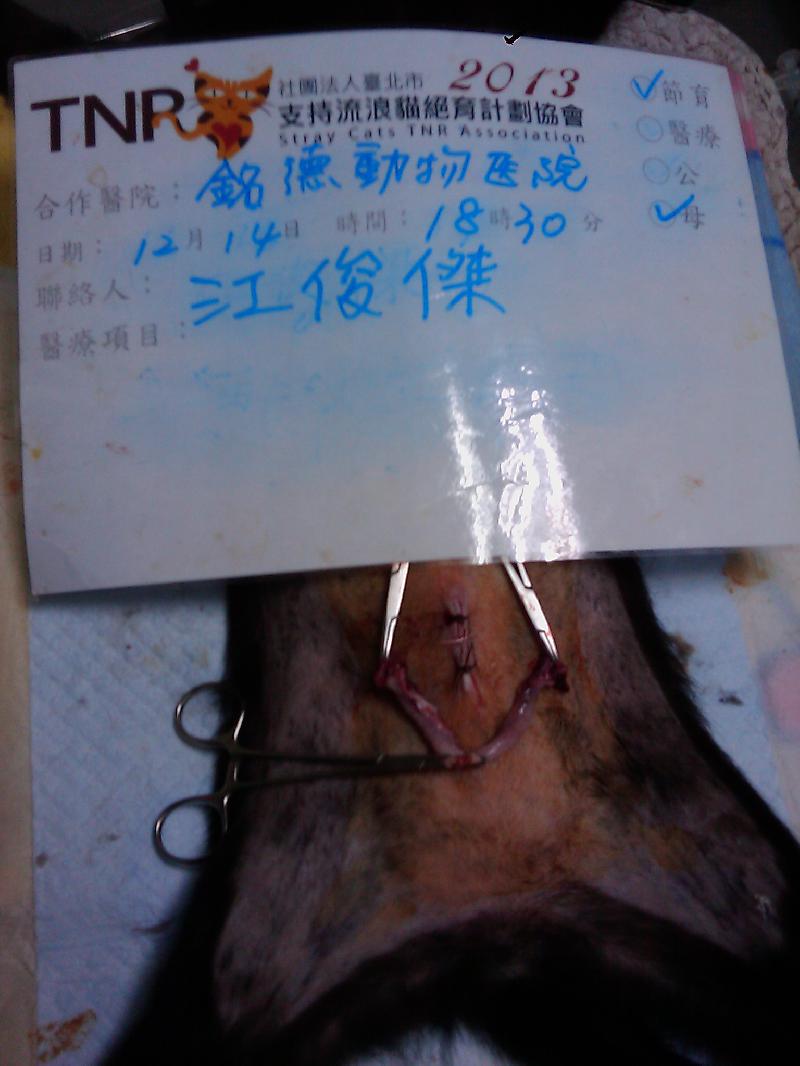 TNR
社團法人臺北市 2013
支持流浪貓絕育計劃協會
Stray Cats TNR Association
節育
醫療
公
母
合作醫院：銘德動物医院
日期：12月14日 時間：18時30分
聯絡人：江俊傑
醫療項目：